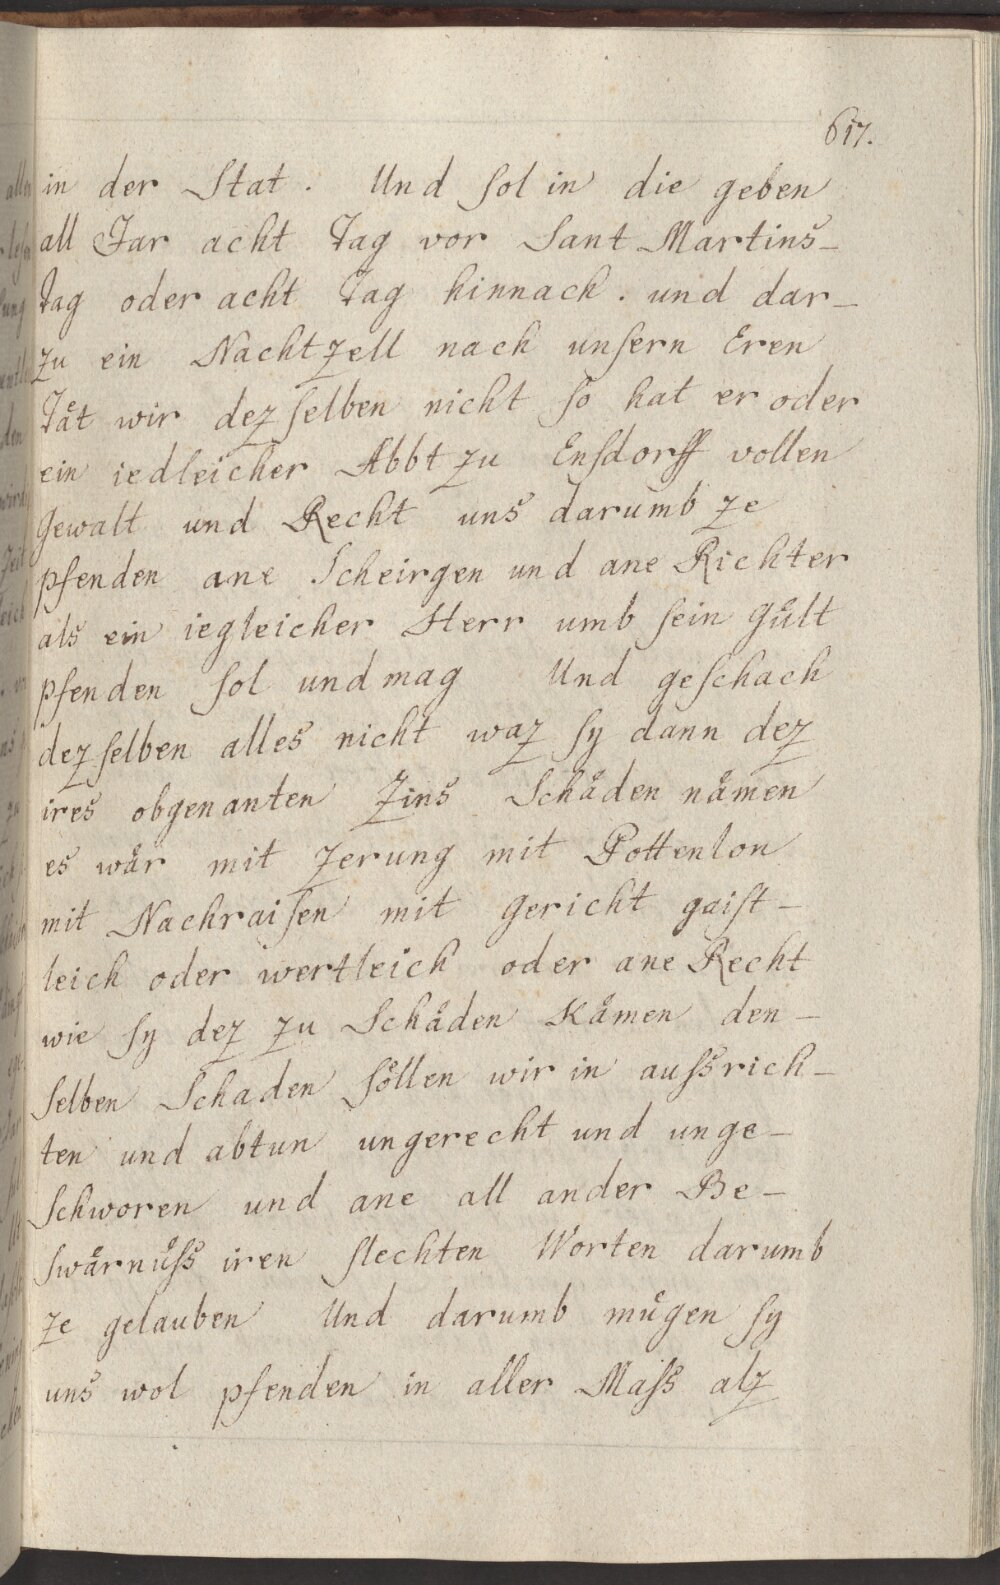 617.
in der Stat. Und sol in die geben
all Jar acht Tag vor Sant Martins-
tag oder acht Tag hinnach. und dar-
zu ein Nachtzell nach unsern Eren
Tåt wir dez selben nicht so hat er oder
ein iedleicher Abbt zu Ensdorff vollen
Gewalt und Recht uns darumb ze
pfenden ane Scheirgen und ane Richter
als ein iegleicher Herr umb sein Gůlt
pfenden sol und mag Und geschach
dez selben alles nicht waz sy dann dez
ires obgenanten Zins Schåden nåmen
es wår mit Zerung mit Pottenlon
mit Nachraisen mit Gericht gaist-
leich oder wertleich oder ane Recht
wie sy dez zu Schåden Kåmen den-
selben Schaden söllen wir in aussrich-
ten und abtun ungerecht und unge-
schworen und ane all ander Be-
swårnůss iren slechten Worten darumb
ze gelauben Und darumb můgen sy
uns wol pfenden in aller Mass alz